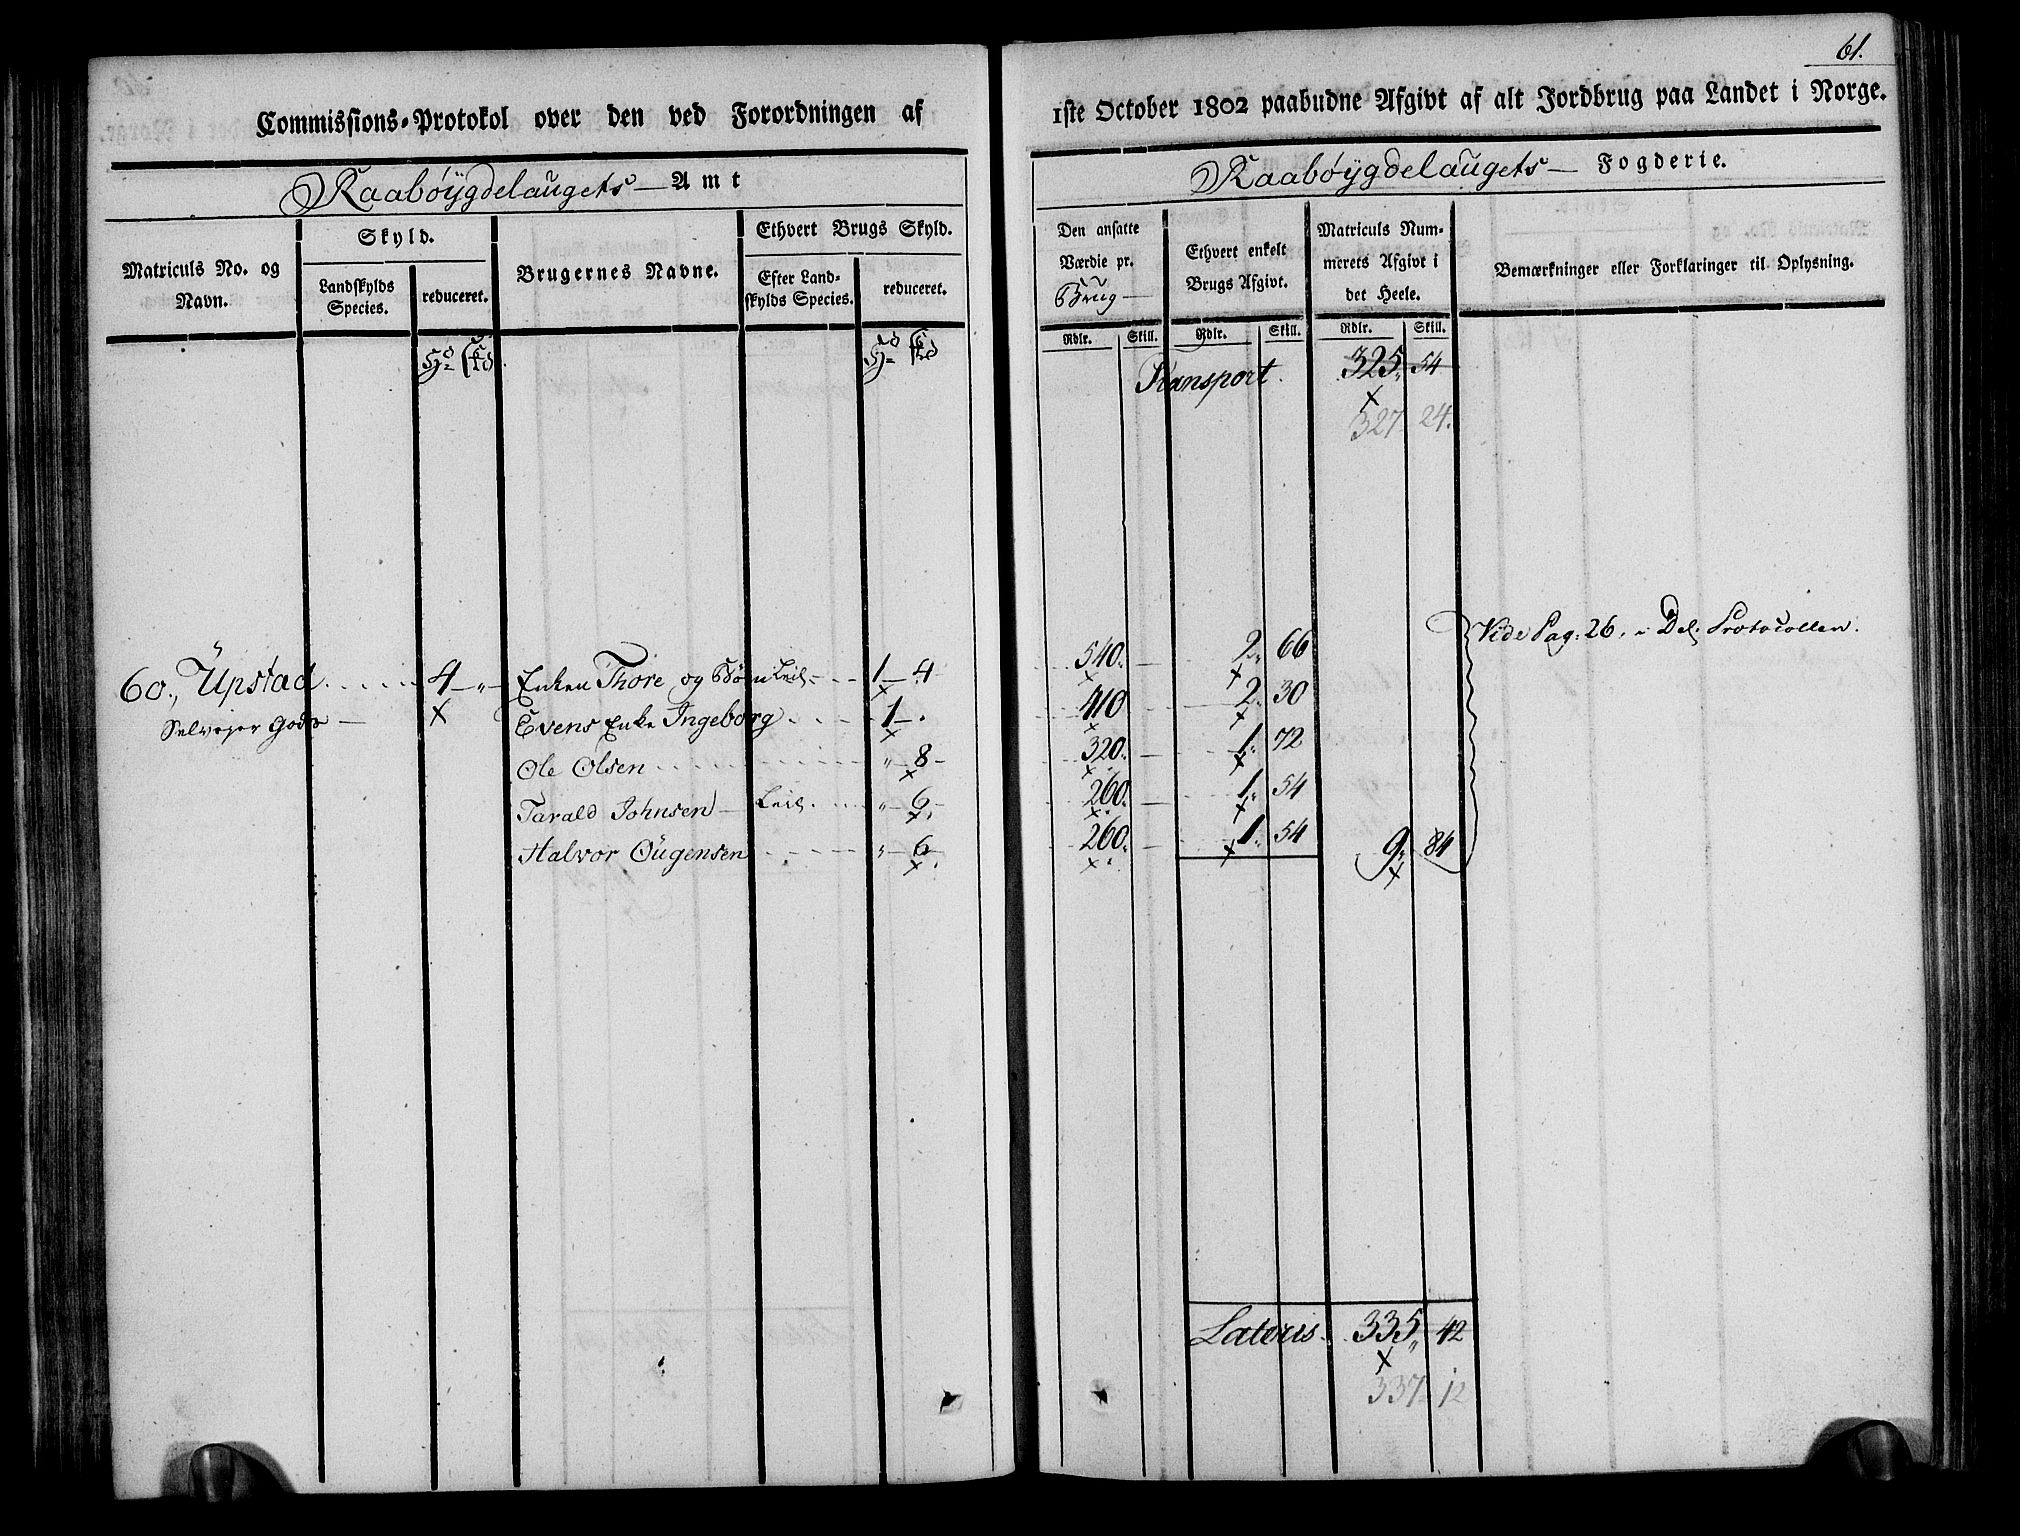 61.
Commissions-Protokol over den ved Forordningen af 1ste October 1802 paabudne Afgivt af alt Jordbrug paa Landet i Norge.
Raabøygdelaugets Amt
Raabøygdelaugets Fogderie.
Matriculs No. og Navn.
Skyld.
Landskylds Species.
reduceret.
Brugernes Navne.
Ethvert Brugs Skyld.
Efter Landskylds Species.
reduceret.
Den ansatte Værdie pr. Brug
Ethvert enkelt Brugs Afgivt.
Matriculs Nummerets Afgivt i det Heele.
Bemærkninger eller Forklaringer til Oplysning.
Rdlr. Skill. Rdlr. Skill. Rdlr. Skill.
Transport. 325 54
327 24.
Vide Pag: 26, i Del. Protocollen.
60, Upstad 4 Enken Thore og Børn Leil. 1 4 540 2 66
Selvejer Gods Evens Enke Ingeborg 1 410 2 30
Ole Olsen 8 320 1 72
Tarald Johnsen Leil. 6 260 1 54
Halvor Ougensen 6 260 1 54 9 84
Lateris. 335 42
337 12